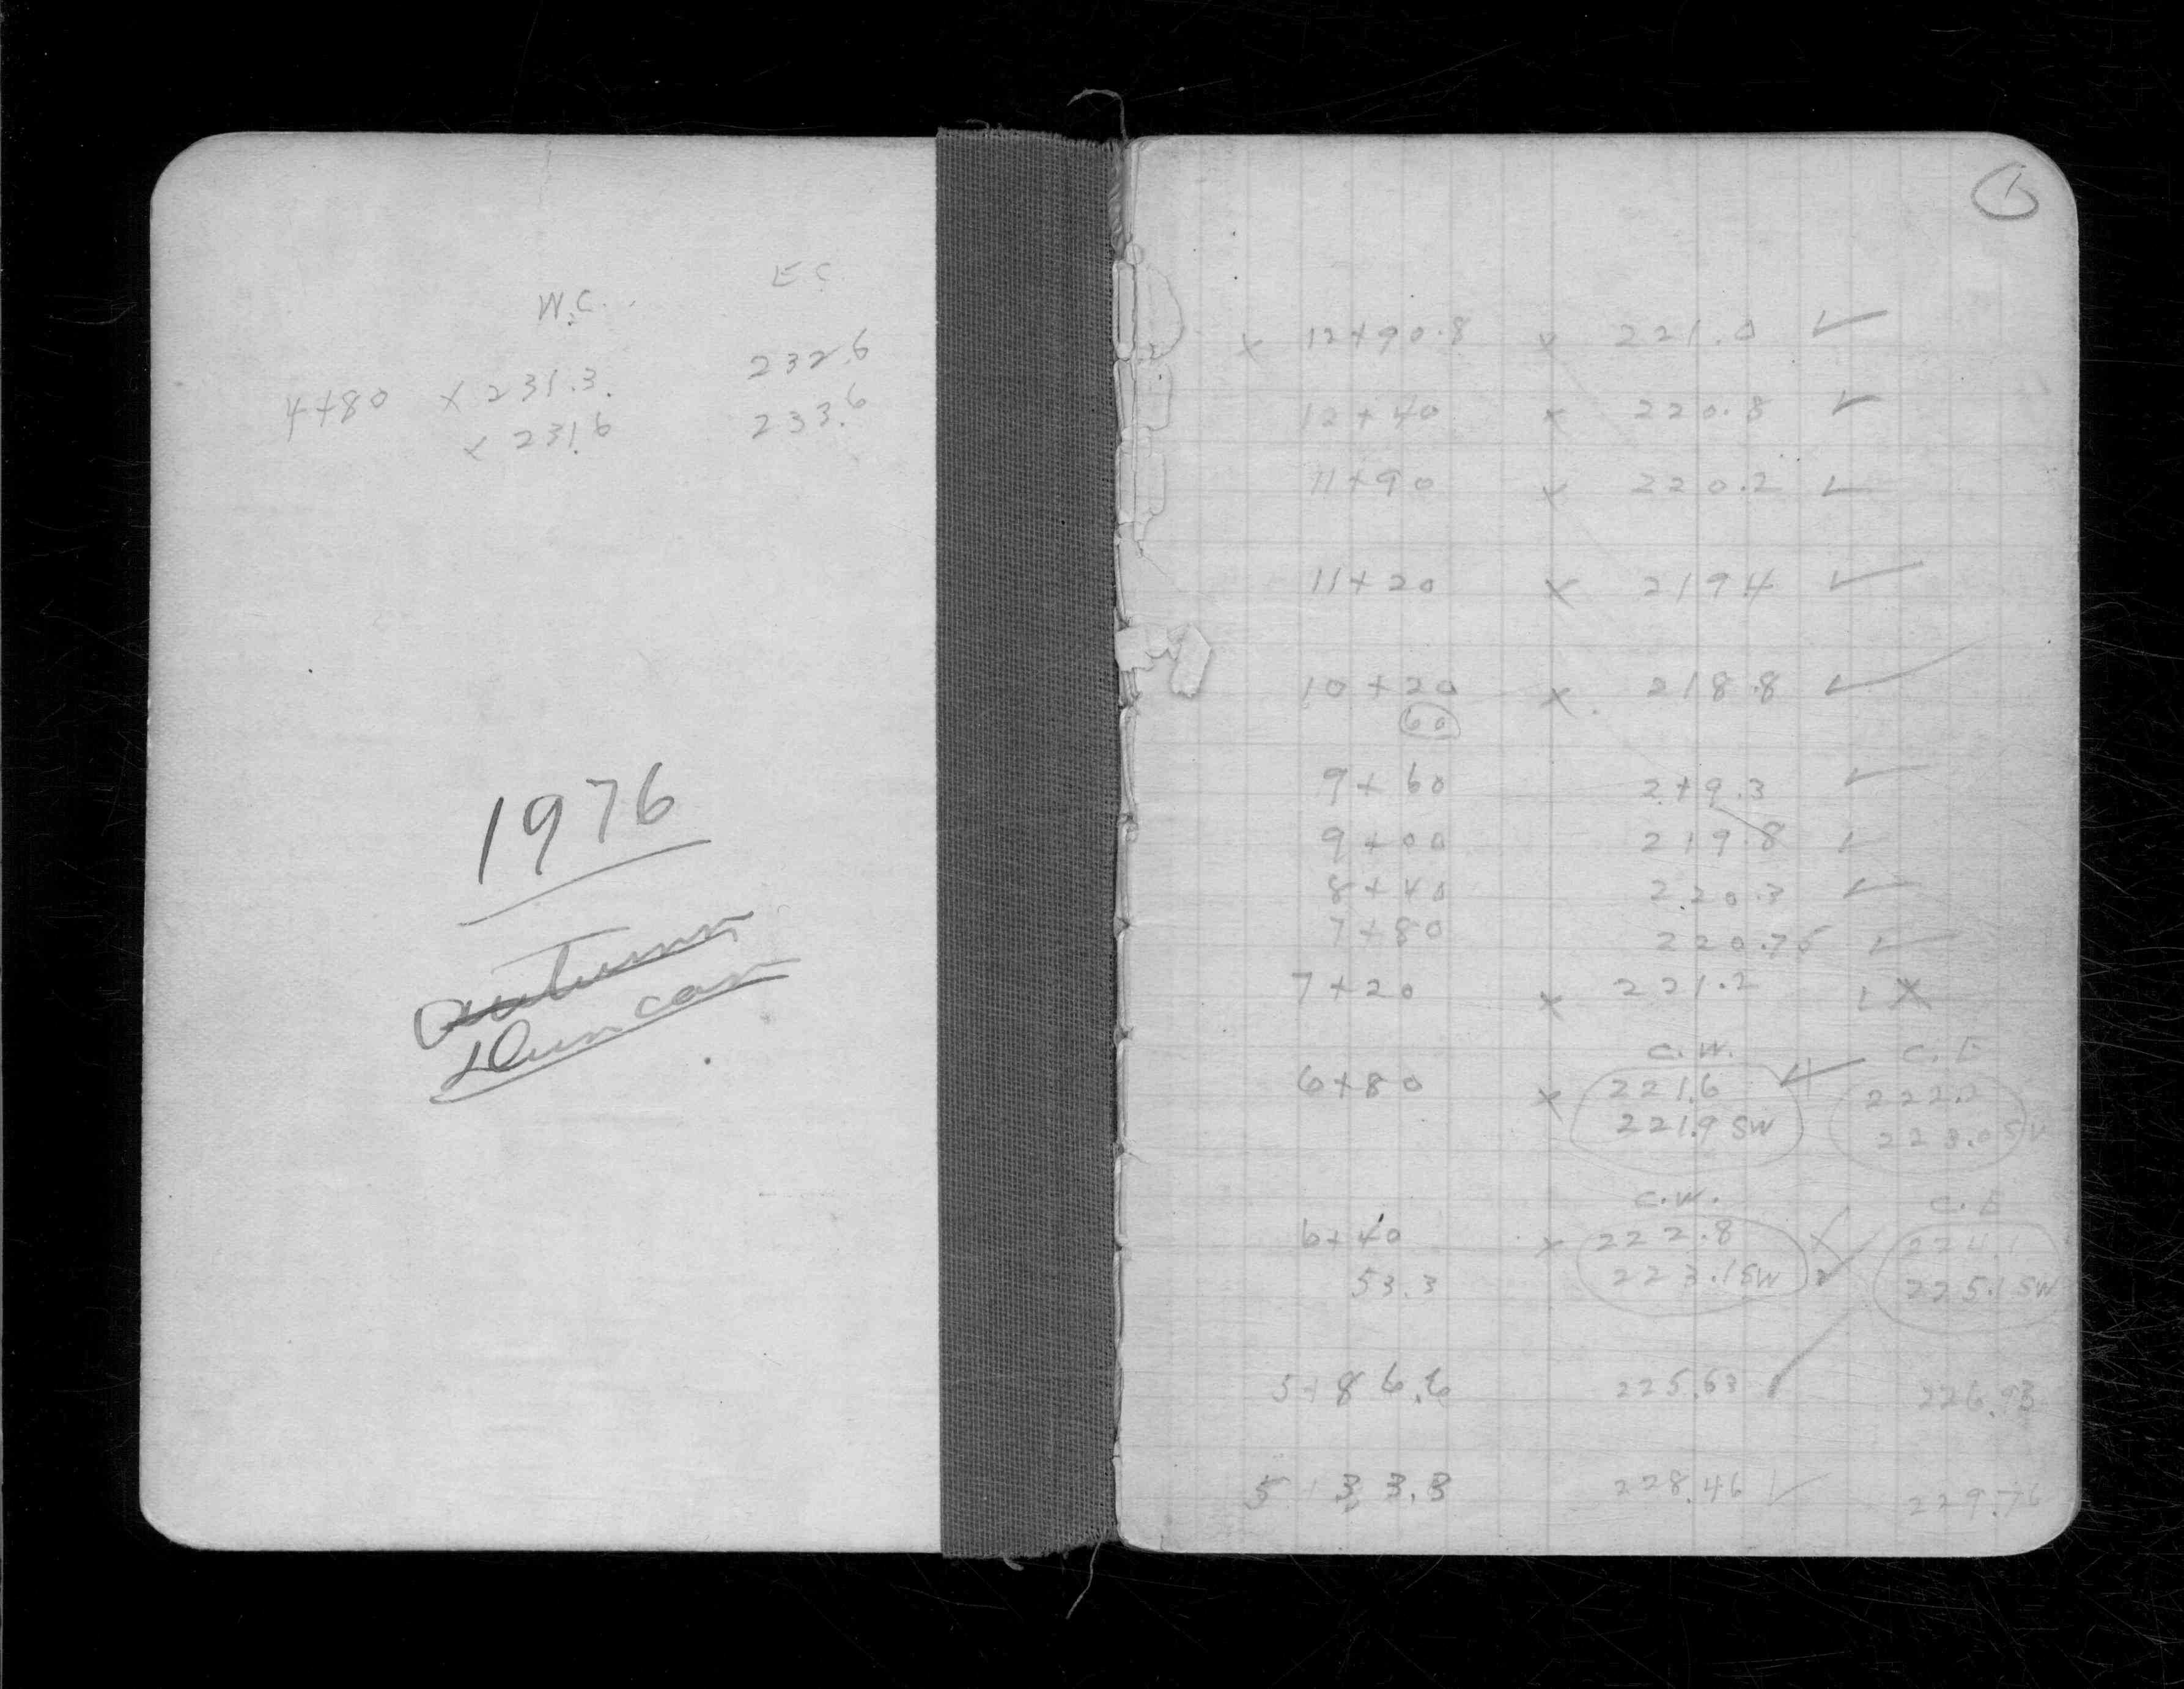 W.C. E.C.
4+80 x 231.3. 232.6
x 231.6 233.6
1976
autumn
Duncan
1
x 12+90.8 x 221.0 ✓
12+40 x 220.8 ✓
11+90 x 220.2 ✓
11+20 x 219.4 ✓
10+20 x 218.8 ✓
60
9+60 219.3 ✓
9+00 219.8 ✓
8+40 220.3 ✓
7+80 220.75 ✓
7+20 x 221.2
C.W. C.E
6+80 x 221.6 ✓
221.9 SW 223.0 SW
C.W. C.E
6+40 x 222.8 224.1
53.3 223.1 SW 225.1 SW
5+86.6 225.63 ✓ 226.93
5+33.3 228.46 ✓ 229.76